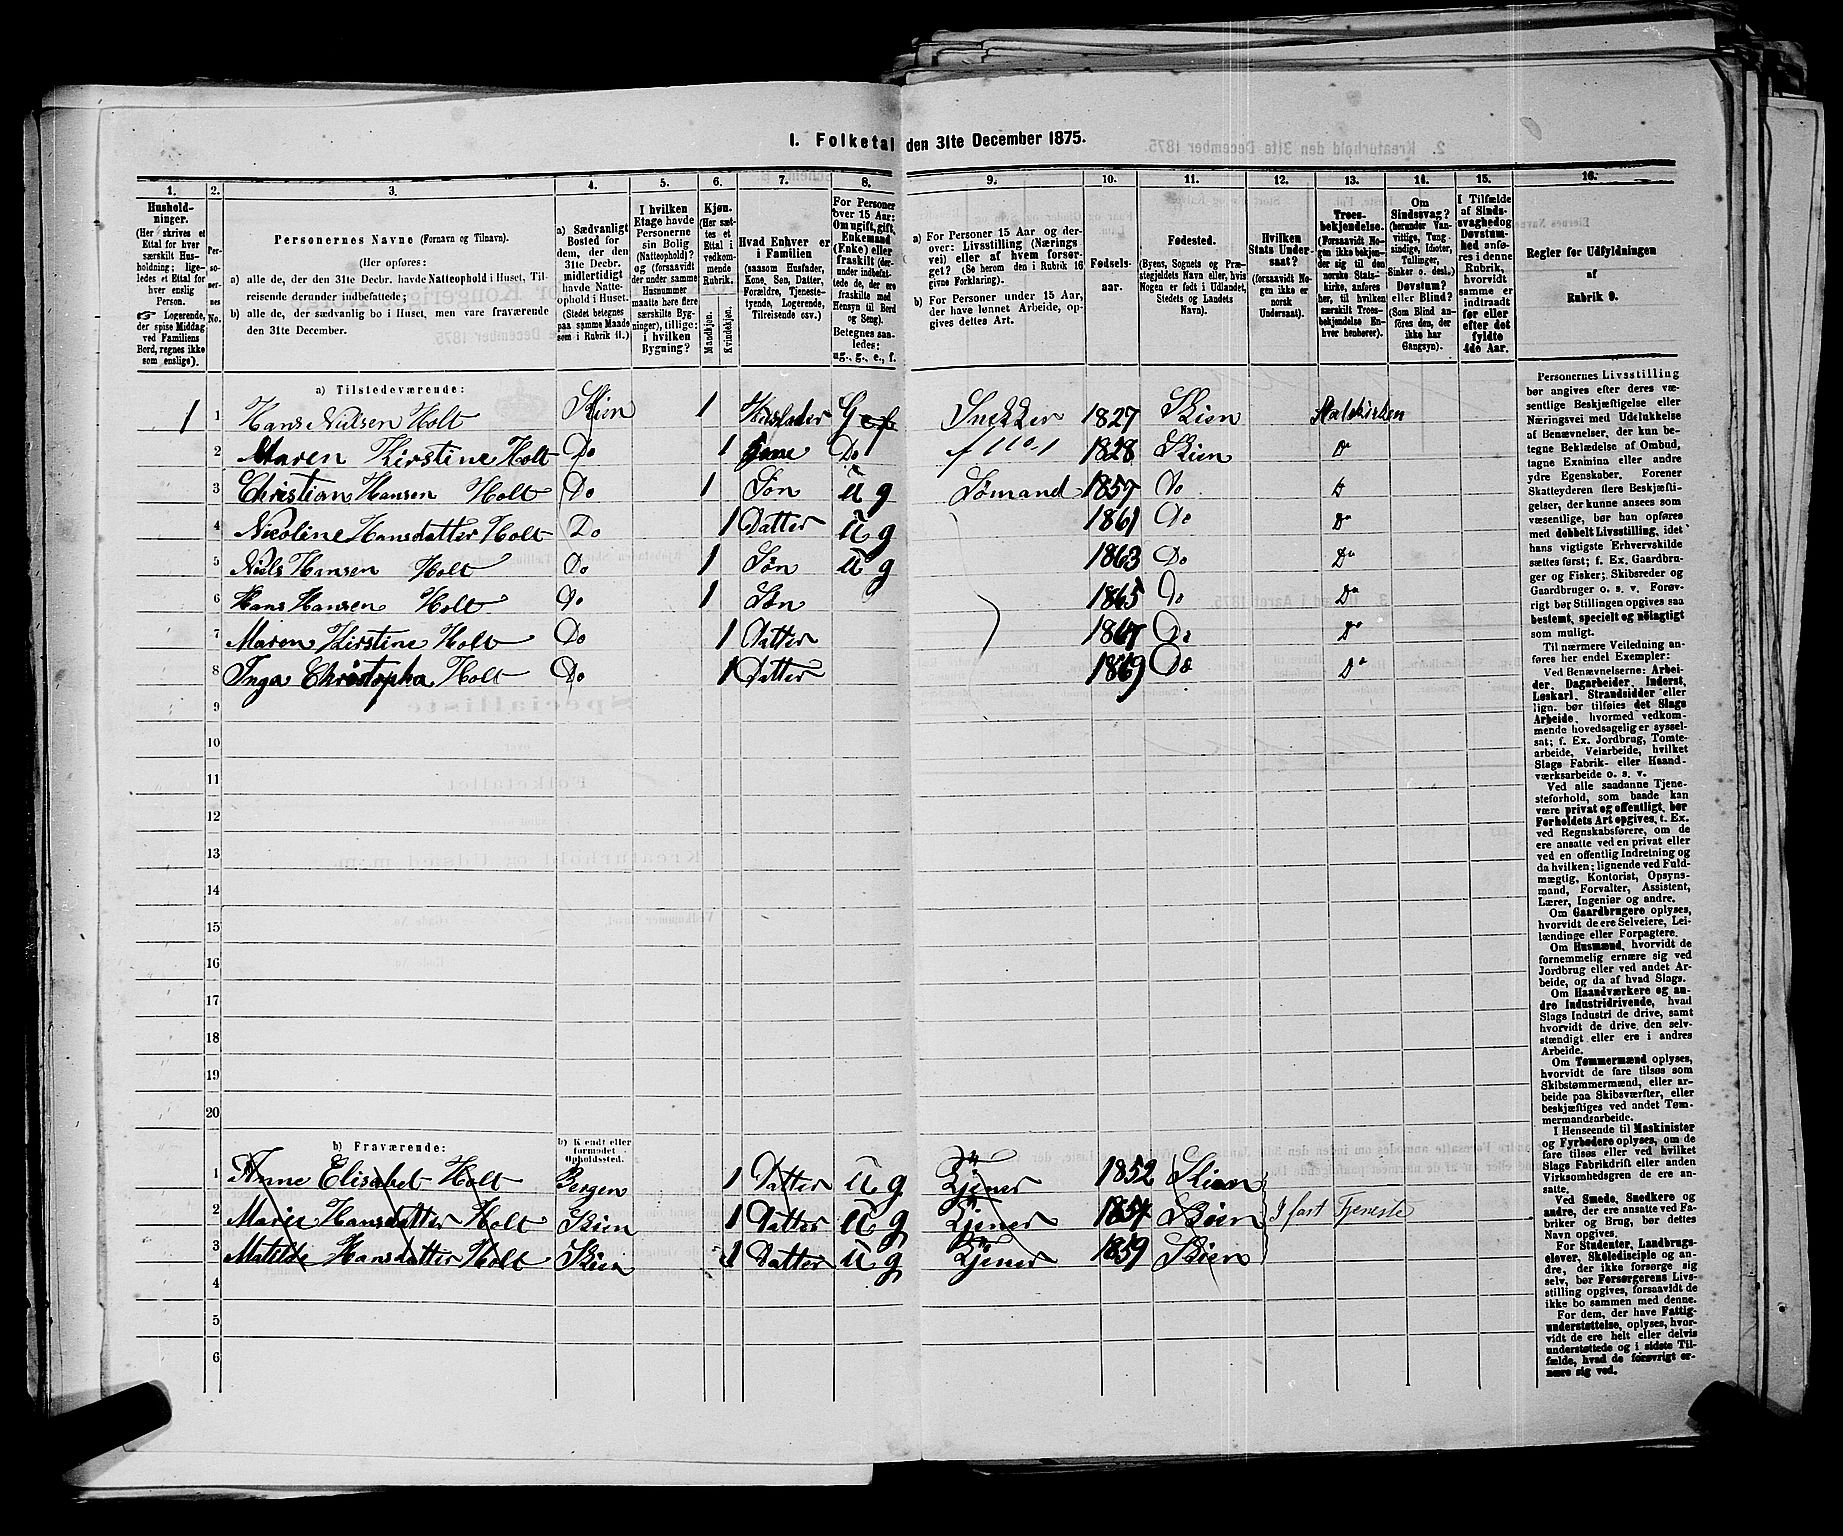 1. Folketal den 31te December 1875.
1. 2. 3. 4. 5. 6. 7. 8. 9. 10. 11. 12. 13. 14. 15. 16.
Husholdninger.
(Her skrives et
Ettal for hver
særskilt Husholdning;
ligeledes
et Ettal for
hver enslig
Person.
Logerende,
der spise Middag
ved Familiens
Bord, regnes ikke
som enslige).
Personernes
No.
Personernes Navne (Fornavn og Tilnavn).
(Her opføres:
a) alle de, der den 31te Decbr. havde Natteophold i Huset, Tilreisende
derunder indbefattede;
b) alle de, der sædvanlig bo i Huset, men vare fraværende
den 31te December.
a) Sædvanligt
Bosted for
dem, der den
31te Decbr.
midlertidigt
havde Natteophold
i Huset.
(Stedet betegnes
paa samme Maade
som i Rubrik 11.)
I hvilken
Etage havde
Personerne
sin Bolig
(Natteophold)?
og (forsaavidt
der under samme
Husnummer
maatte høre flere
særskilte Bygninger),
tillige:
i hvilken
Bygning?
Kjøn.
(Her sættes
et Ettal i
vedkommende
Rubrik.
Mandkjøn.
Kvindekjøn.
Hvad Enhver er
i Familien
(saasom Husfader,
Kone, Søn, Datter,
Forældre, Tjenestetyende,
Logerende,
Tilreisende osv.)
For Personer
over 15 Aar:
Om ugift, gift,
Enkemand
(Enke) eller
fraskilt (derunder
indbefattede
de, der ere
fraskilte med
Hensyn til Bord
og Seng).
Betegnes saaledes:
ug., g., e., f.
a) For Personer 15 Aar og derover:
Livsstilling (Næringsvei)
eller af hvem forsørget?
(Se herom den i Rubrik 16
givne Forklaring).
b) For Personer under 15 Aar,
der have lønnet Arbeide, opgives
dettes Art.
Fødselsaar.
Fødested.
(Byens, Sognets og Præstegjeldets
Navn eller, hvis
Nogen er født i Udlandet,
Stedets og Landets
Navn).
Hvilken
Stats Undersaat?
(forsaavidt Nogen
ikke er norsk
Undersaat).
Troesbekjendelse.
(Forsaavidt Nogen
ikke bekjender
sig til den
norske Statskirke,
anføres
her, til hvilken
særskilt Troesbekjendelse
Enhver
henhører).
Om
Sindssvag?
(herunder Vanvittige,
Tungsindige,
Idioter,
Tullinger,
Sinker o. desl.)
Døvstum?
eller Blind?
(Som Blind anføres
den, der
ikke har
Gangsyn).
I Tilfælde
af Sindssvaghed
og
Døvstumhed
anføres
i denne
Rubrik,
hvorvidt
samme er
indtraadt
før eller
efter det
fyldte
4de Aar.
Regler for Udfyldningen
af
Rubrik 9.
a) Tilstedeværende:
1 1 Hans Nilsen Holt Skien 1 Husfader G Snekker 1827 Skien Statskirken
2 Maren Kirstine Holt Do 1 Do 1828 Skien Do
3 Christian Hansen Holt Do 1 Søn u g Sømand 1857 Do Do
4 Nicoline Hansdatter Holt Do 1 Datter u g 1861 Do Do
5 Niels Hansen Holt Do 1 Søn u g 1863 Do Do
6 Hans Hansen Holt Do 1 Søn 1865 Do Do
7 Maren Kirstine Holt Do 1 Datter 1867 Do Do
8 Inga Christopha Holt Do 1 Datter 1869 Do Do
9
10
11
12
13
14
15
16
17
18
19
20
b) Fraværende:
b) Kjendt eller
formodet
Opholdssted.
1 Anne Elisabet Holt Bergen 1 Datter u g Tjener 1852 Skien
2 Marie Hansdatter Holt Skien 1 Datter u g Tjener 1854 Skien I fast Tjeneste
3 Matilde Hansdatter Holt Skien 1 Datter u g Tjener 1859 Skien
4
5
6
Personernes Livsstilling
bør angives efter deres væsentlige
Beskjæftigelse eller
Næringsvei med Udelukkelse
af Benævnelser, der kun betegne
Beklædelse af Ombud,
tagne Examina eller andre
ydre Egenskaber. Forener
Skatteyderen flere Beskjæftigelser,
der kunne ansees som
væsentlige, bør han opføres
med dobbelt Livsstilling, idet
hans vigtigste Erhvervskilde
sættes først; f. Ex. Gaardbruger
og Fisker; Skibsreder og
Gaardbruger o. s. v. Forøvrigt
bør Stillingen opgives saa
bestemt, specielt og nøiagtigt
som muligt.
Til nærmere Veiledning anføres
her endel Exempler:
Ved Benævnelserne: Arbeider,
Dagarbeider, Inderst,
Løskarl, Strandsidder eller
lign. bør tilføies det Slags
Arbeide, hvormed vedkommende
hovedsagelig er sysselsat;
f. Ex. Jordbrug, Tomtearbeide,
Veiarbeide, hvilket
Slags Fabrik- eller Haandværksarbeide
o. s. v.
Ved alle saadanne Tjenesteforhold,
som baade kan
være privat og offentligt, bør
Forholdets Art opgives, t. Ex.
ved Regnskabsførere, om de
ere ansatte ved en privat eller
ved en offentlig Indretning og
da hvilken; lignende ved Fuldmægtig,
Kontorist, Opsynsmand,
Forvalter, Assistent,
Lærer, Ingeniør og andre.
Om Gaardbrugere oplyses,
hvorvidt de ere Selveiere, Leilændinge
eller Forpagtere.
Om Husmænd, hvorvidt de
fornemmelig ernære sig ved
Jordbrug eller ved andet Arbeide,
og da af hvad Slags.
Om Haandværkere og andre
Industridrivende, hvad
Slags Industri de drive, samt
hvorvidt de drive den selvstændigt
eller ere i andres
Arbeide.
Om Tømmermænd oplyses,
hvorvidt de fare tilsøs som
Skibstømmermænd, eller arbeide
paa Skibsværfter, eller
beskjæftiges ved andet Tømmermandsarbeide.
I Henseende til Maskinister
og Fyrbødere oplyses, om de
fare tilsøs eller ved hvilket
Slags Fabrikdrift eller anden
Virksomhedsgren de ere ansatte.
Ved Smede, Snedkere og
andre, der ere ansatte ved Fabriker
og Brug, bør dettes
Navn opgives.
For Studenter, Landbrugselever,
Skoledisciple og andre,
der ikke forsørge sig
selv, bør Forsørgerens Livsstilling
opgives, forsaavidt de
ikke bo sammen med denne.
For dem, der have Fattigunderstøttelse,
oplyses, hvorvidt
de ere helt eller delvis
understøttede og i sidste Tilfælde,
hvad de forøvrigt ernære
sig ved.